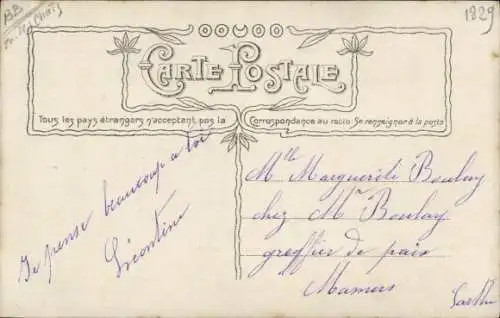 1829
CARTE POSTALE
Tous les pays étrangers n'acceptent pas la Correspondance au recto Se renseigner à la poste
Je pense beaucoup a toi
Léontine
Mlle Marguerite Boulay
chez Mr Boulay
greffier de paix
Mamers
Sarthe